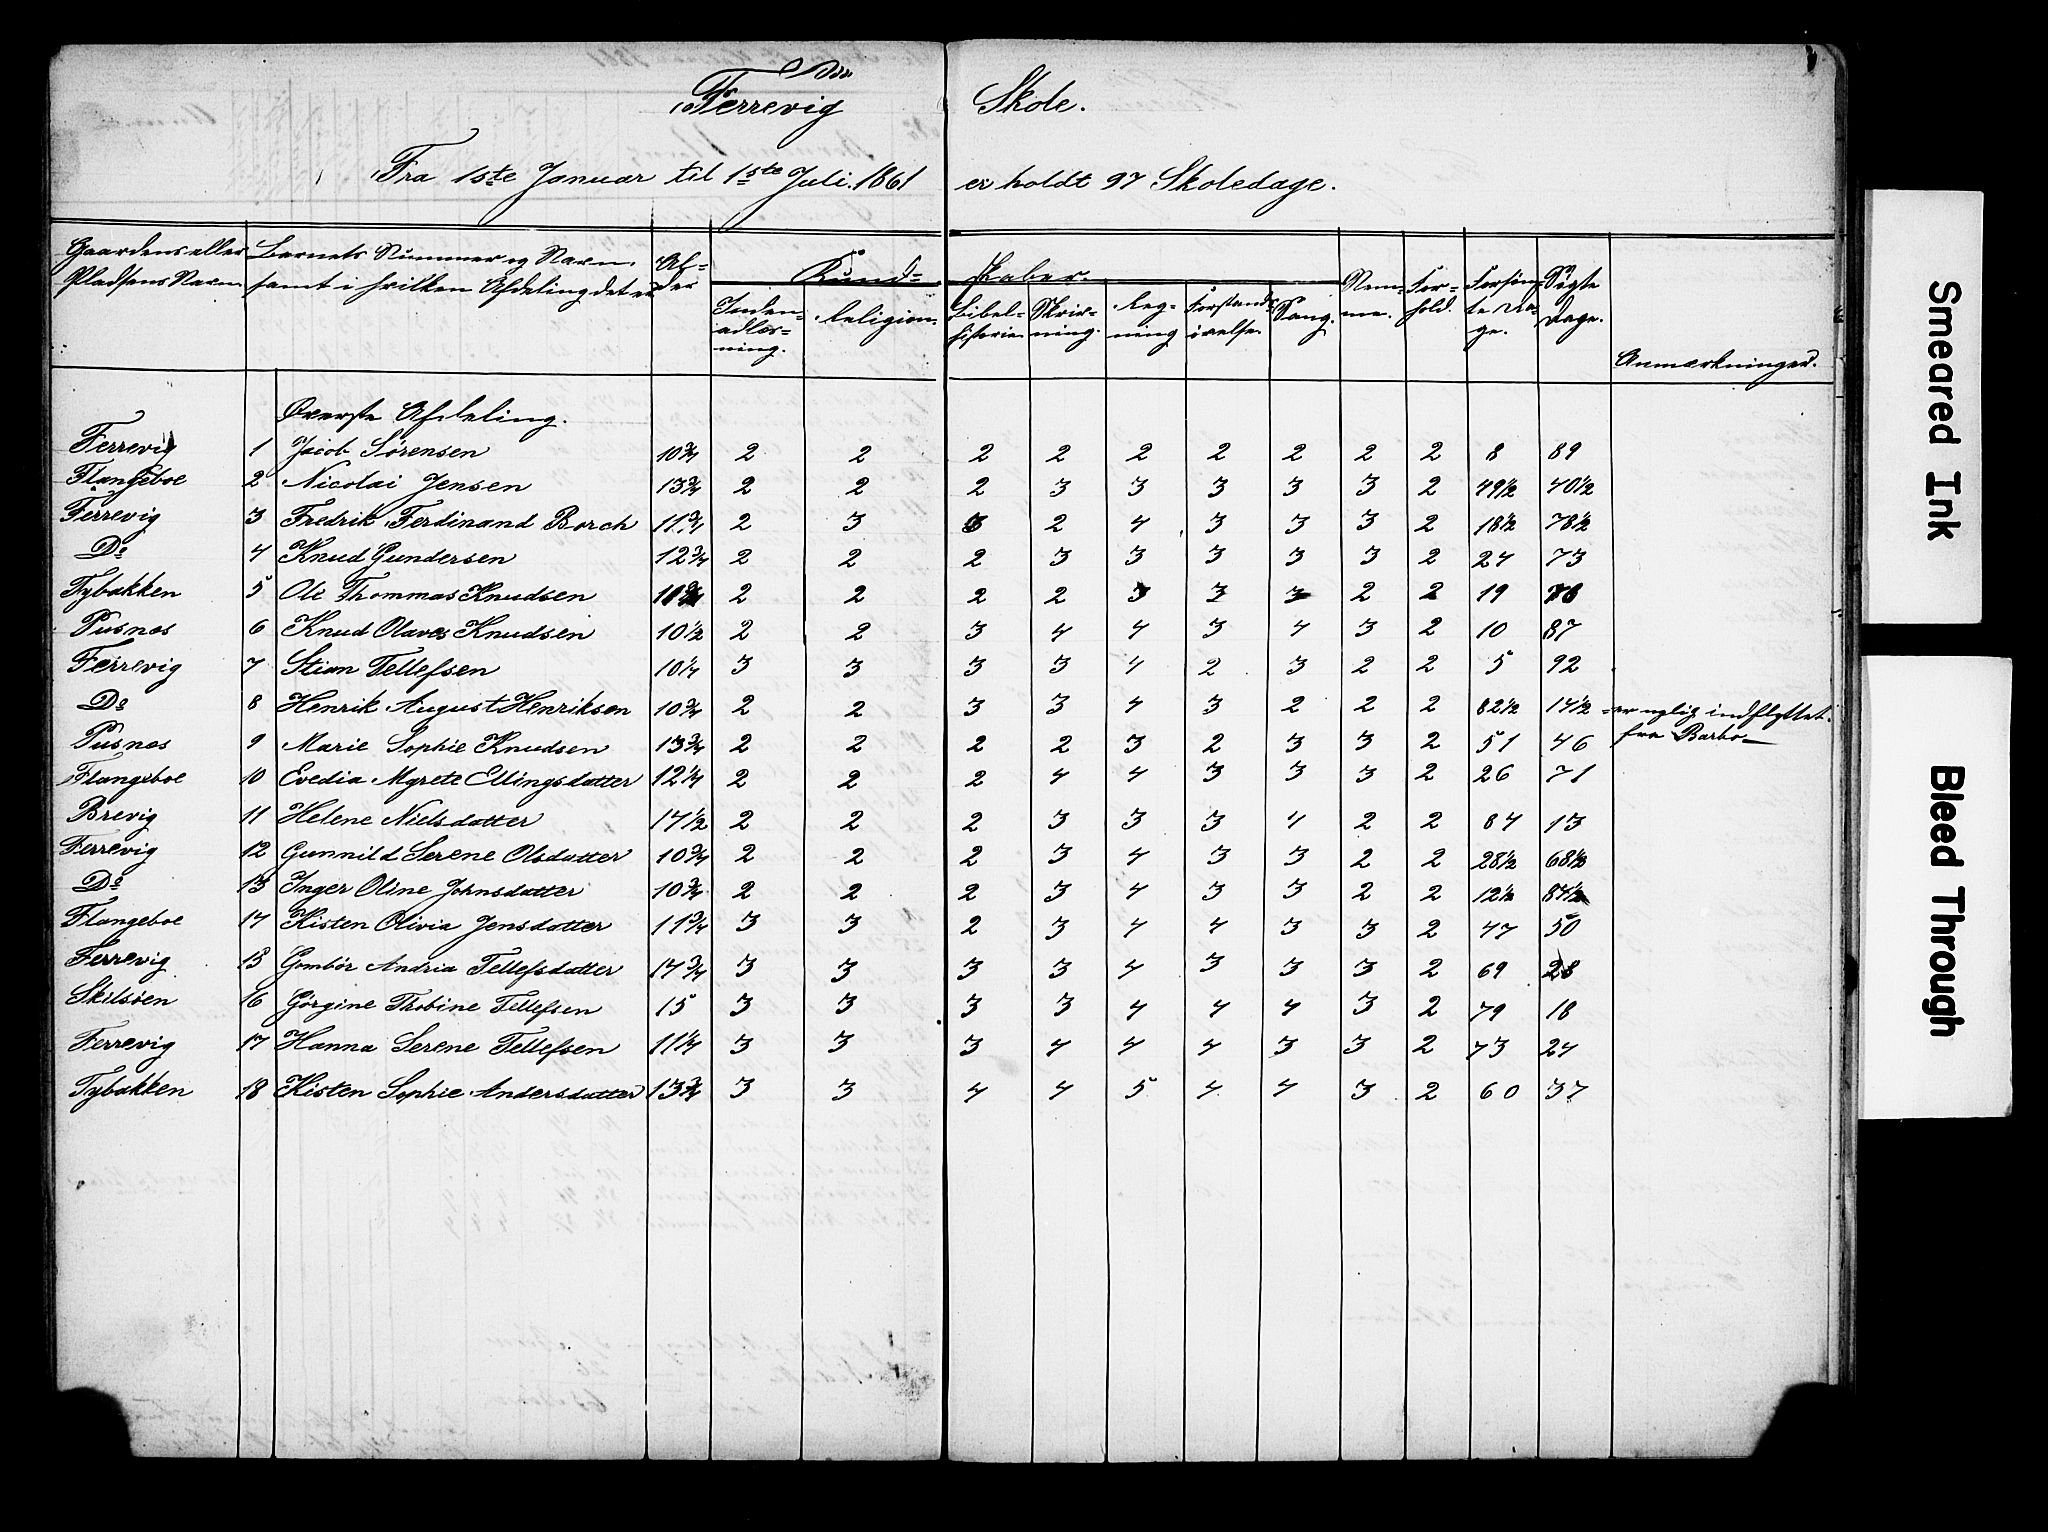 Færrevig Skole.
Fra 1ste Januar til 1ste Juli 1861 er holdt 97 Skoledage.
Gaardens eller Pladsens Navn | Barnets Nummer og Navn samt i hvilken Afdeling det er | Al- der | Kund- skaber. | Nem- me. | For- hold. | Forsøm- te Da- ge. | Søgte Dage. | Anmærkninger.
Inden- adlæs- ning. | Religion. | Bibel- historie. | Skriv- ning. | Reg- ning | Forstands- øvelse. | Sang.
Øverste Afdeling.
Ferrevig 1 Jacob Sørensen 10 3/4 2 2 2 2 2 2 2 2 2 8 89
Flangeboe 2 Nicolai Jensen 13 3/4 2 2 2 3 3 3 3 3 2 49½ 40½
Ferrevig 3 Fredrik Ferdinand Borch 11 3/4 2 3 3 2 4 3 3 3 2 18½ 78½
Do 4 Knud Gundersen 12 3/4 2 2 2 3 3 3 3 3 2 24 73
Tybakken 5 Ole Thommas Knudsen 2 2 2 2 3 3 3 2 2 19 78
Pusnes 6 Knud Olaves Knudsen 10½ 2 2 3 4 4 3 4 3 2 10 87
Ferrevig 7 Stian Tellefsen 10¼ 3 3 3 3 4 2 3 2 2 5 92
Do 8 Henrik August Henriksen 10 3/4 2 2 3 3 4 3 2 2 2 82½ 14½ er nylig indflyttet
fra Barbo
Pusnes 9 Marie Sophie Knudsen 13 3/4 2 2 2 2 3 2 3 3 2 51 46
Flangeboe 10 Evedia Mgrete Ellingsdatter 12¼ 2 2 2 4 4 3 3 3 2 26 71
Brevig 11 Helene Nielsdatter 14½ 2 2 2 3 3 3 4 2 2 84 13
Ferrevig 12 Gunnild Serene Olsdatter 10 3/4 2 2 2 3 4 3 3 2 2 28½ 68½
Do 13 Inger Oline Johnsdatter 10 3/4 2 2 2 3 4 3 3 2 2 12½ 84½
Flangeboe 14 Kisten Olivia Jensdatter 11 3/4 3 3 2 3 4 4 3 3 2 47 50
Ferrevig 15 Gombør Andria Tellefsdatter 14 3/4 3 3 3 3 4 3 3 3 2 69 28
Skilsøen 16 Görgine Thobine Tellefsen 15 3 3 3 3 4 4 4 3 2 79 18
Ferrevig 17 Hanna Serene Tellefsen 11¼ 3 3 3 4 4 4 3 3 2 73 24
Tybakken 18 Kisten Sophie Andersdatter 13 3/4 3 3 4 4 5 4 4 3 2 60 37
Smeared Ink
Bleed Through